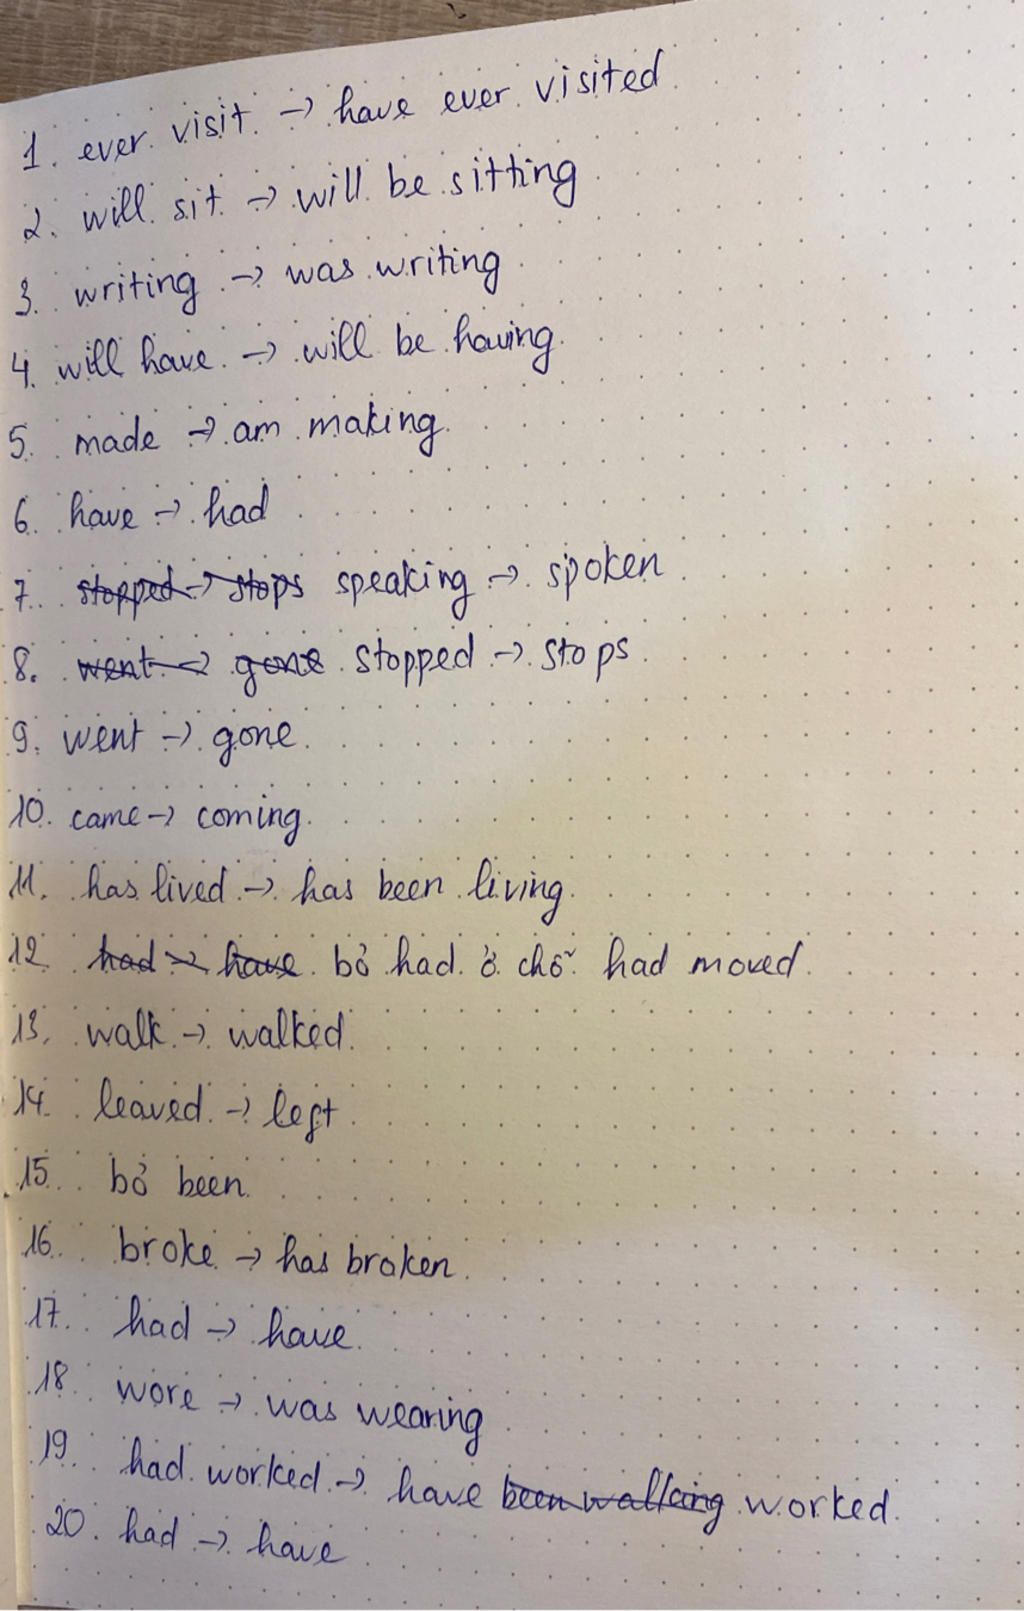 1. ever visit → have ever visited
2. will sit → will be sitting
3. writing → was writing
4. will have → will be having
5. made → am making
6. have → had
7. stopped → stops speaking → spoken
8. went → gone stopped → stops
9. went → gone
10. came → coming
11. has lived → has been living
12. had → have bỏ had ở chỗ had moved
13. walk → walked
14. leaved → left
15. bỏ been
16. broke → has broken
17. had → have
18. wore → was wearing
19. had worked → have been walking worked
20. had → have